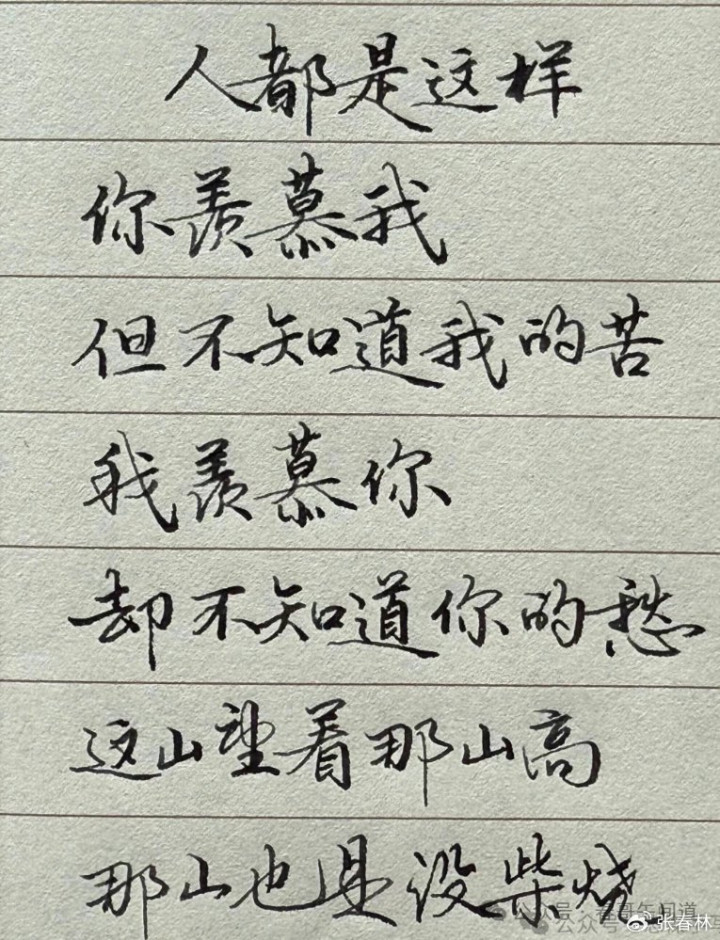 人都是这样
你羡慕我
但不知道我的苦
我羡慕你
却不知道你的愁
这山望着那山高
那山也是没柴烧
公众号
张春林